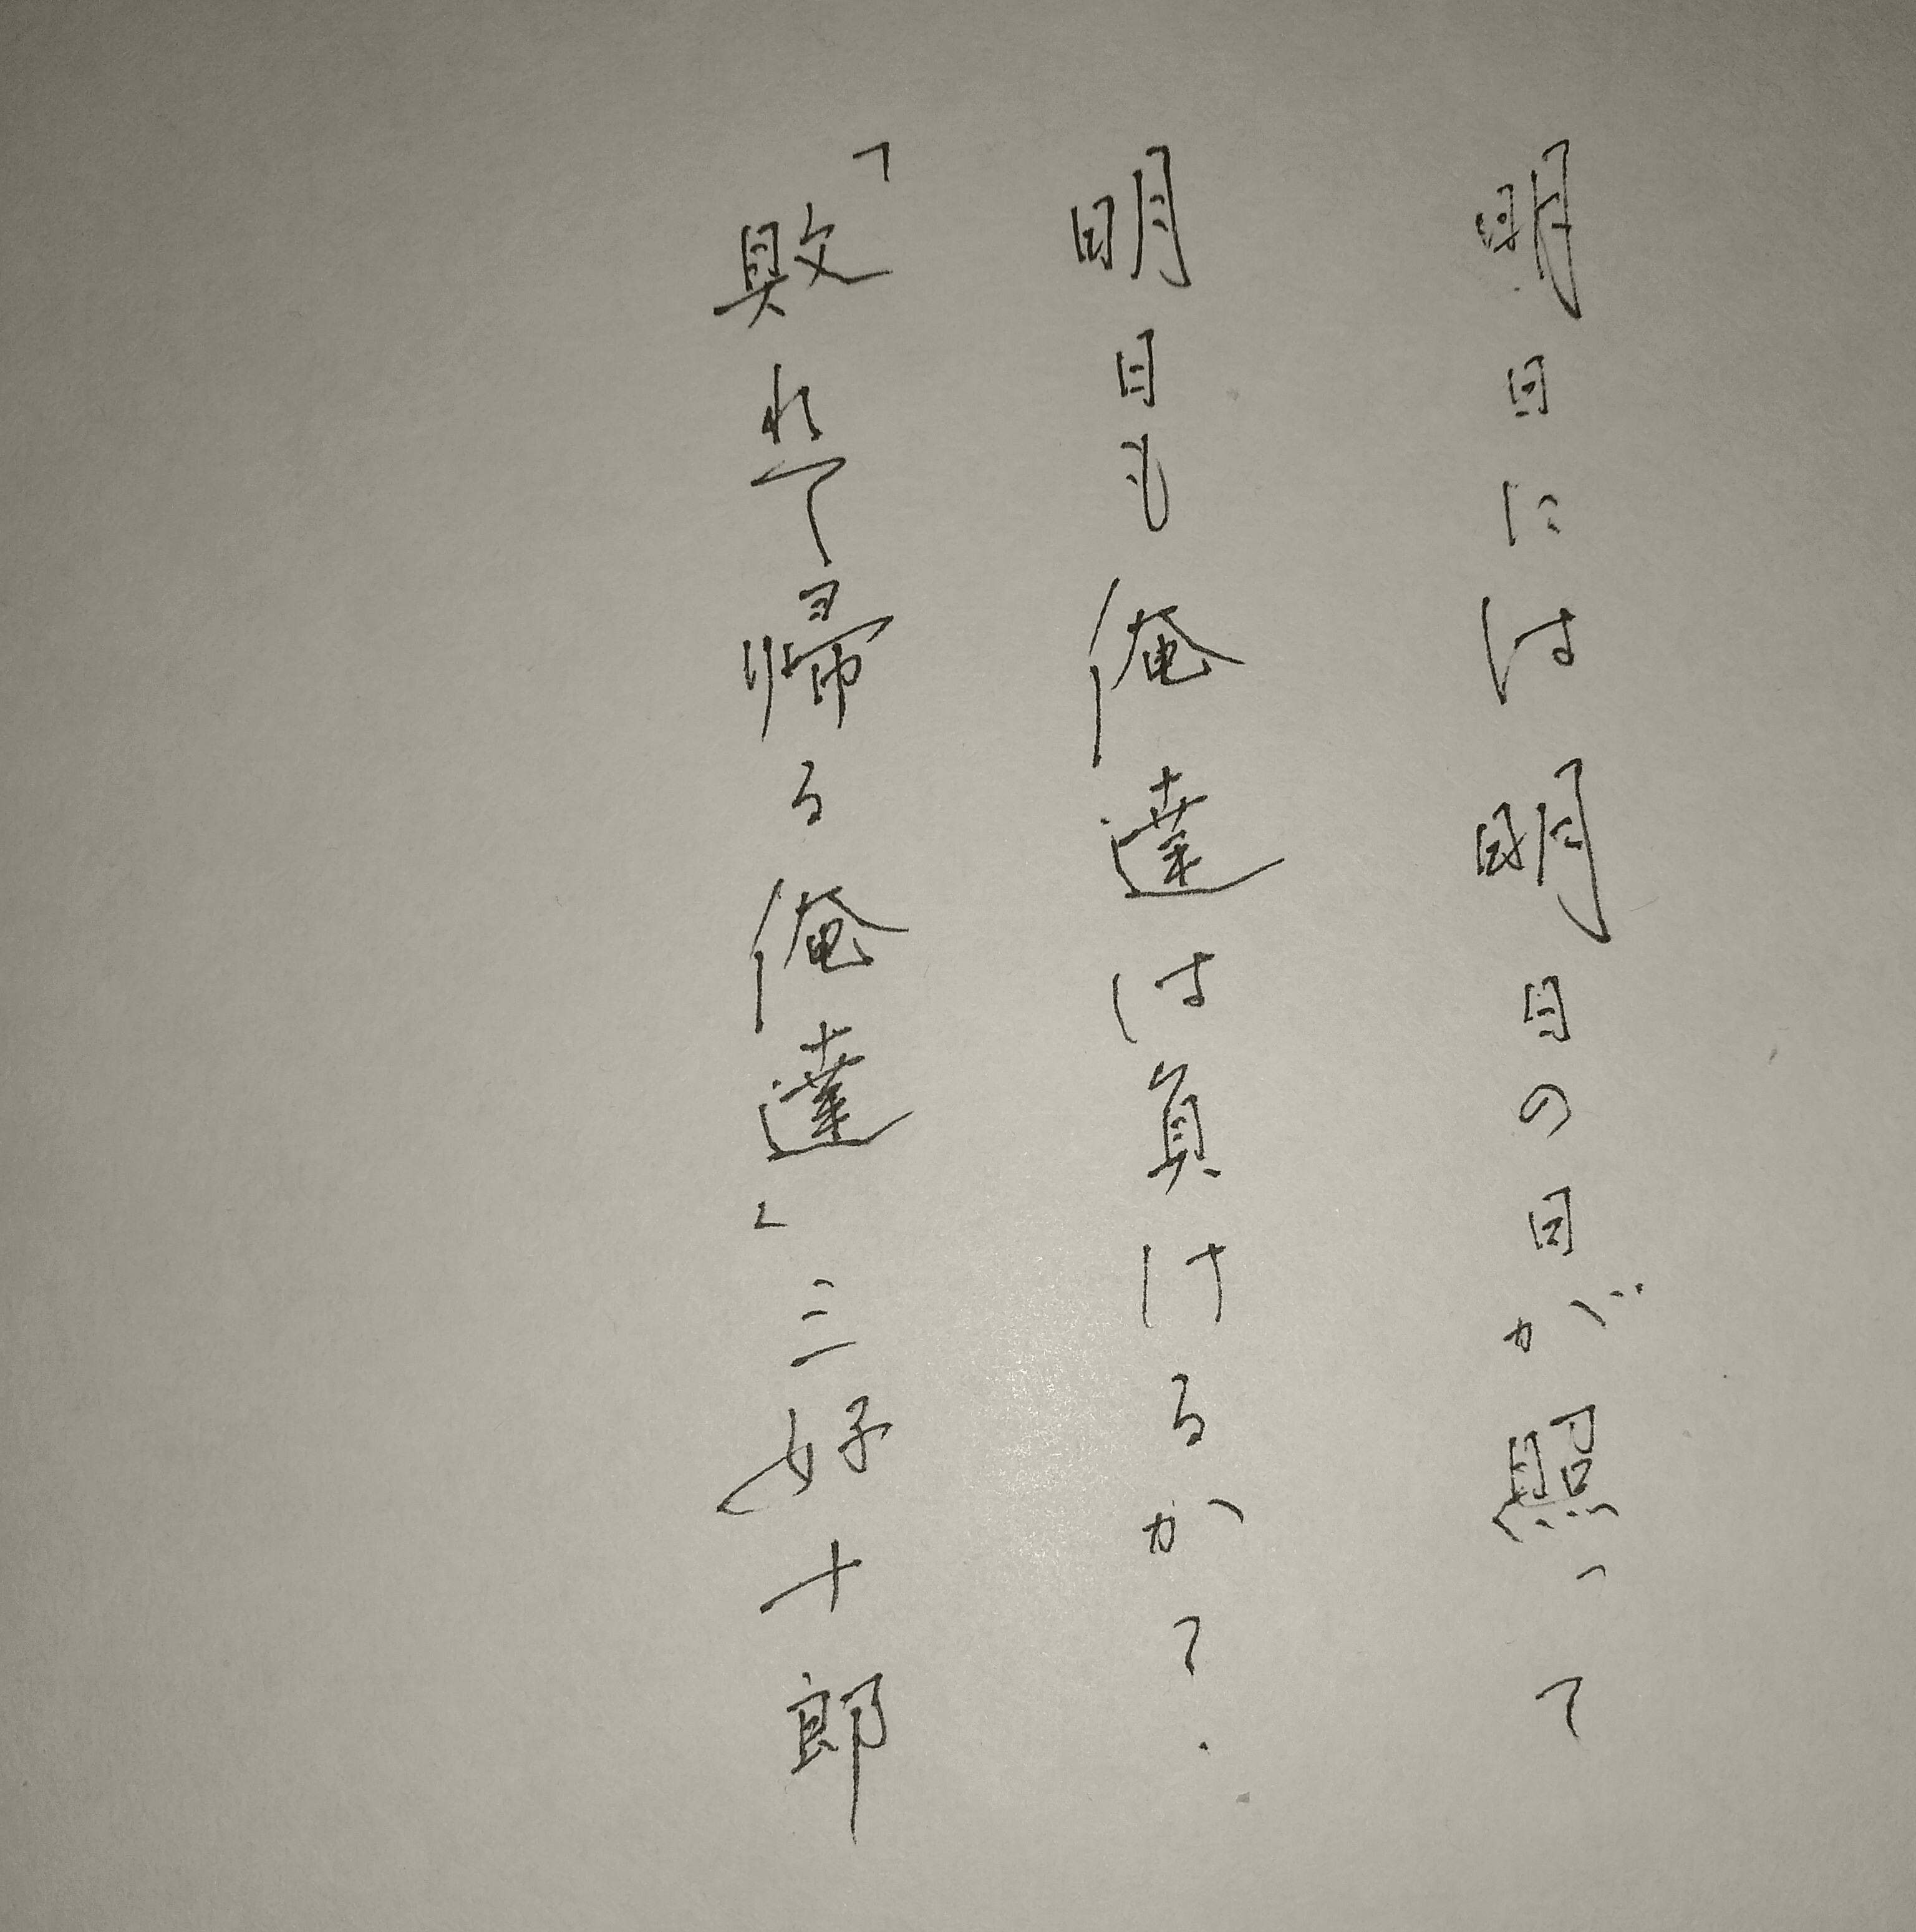 明日には明日の日が照って
明日も俺達は負けるか?
「敗れて帰る俺達」三好十郎